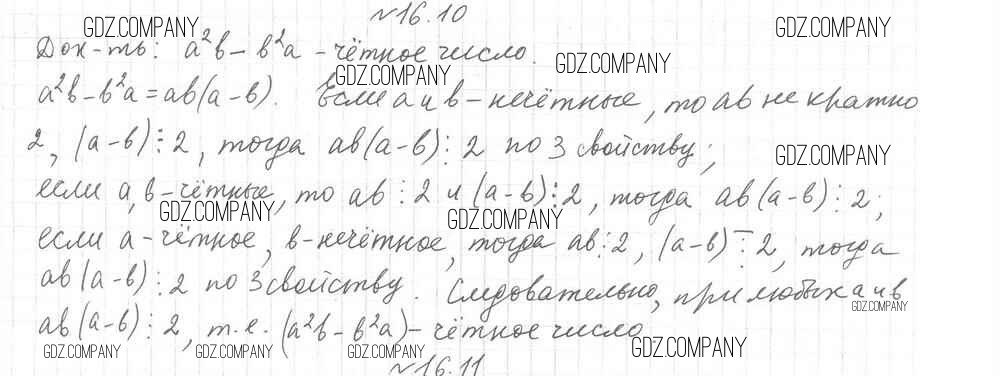 №16.10
Док-ть: a²b – b²a – чётное число.
a²b – b²a = ab(a – b). Если a и b – нечётные, то ab не кратно
2, (a – b)⋮2, тогда ab(a – b)⋮2 по 3 свойству;
если a, b – чётные, то ab⋮2 и (a – b)⋮2, тогда ab(a – b)⋮2;
если a – чётное, b – нечётное, тогда ab⋮2, (a – b)⋮̅2, тогда
ab(a – b)⋮2 по 3 свойству. Следовательно, при любых a и b
ab(a – b)⋮2, т.е. (a²b – b²a) – чётное число
№16.11
GDZ.COMPANY
GDZ.COMPANY
GDZ.COMPANY
GDZ.COMPANY
GDZ.COMPANY
GDZ.COMPANY
GDZ.COMPANY
GDZ.COMPANY
GDZ.COMPANY
GDZ.COMPANY
GDZ.COMPANY
GDZ.COMPANY